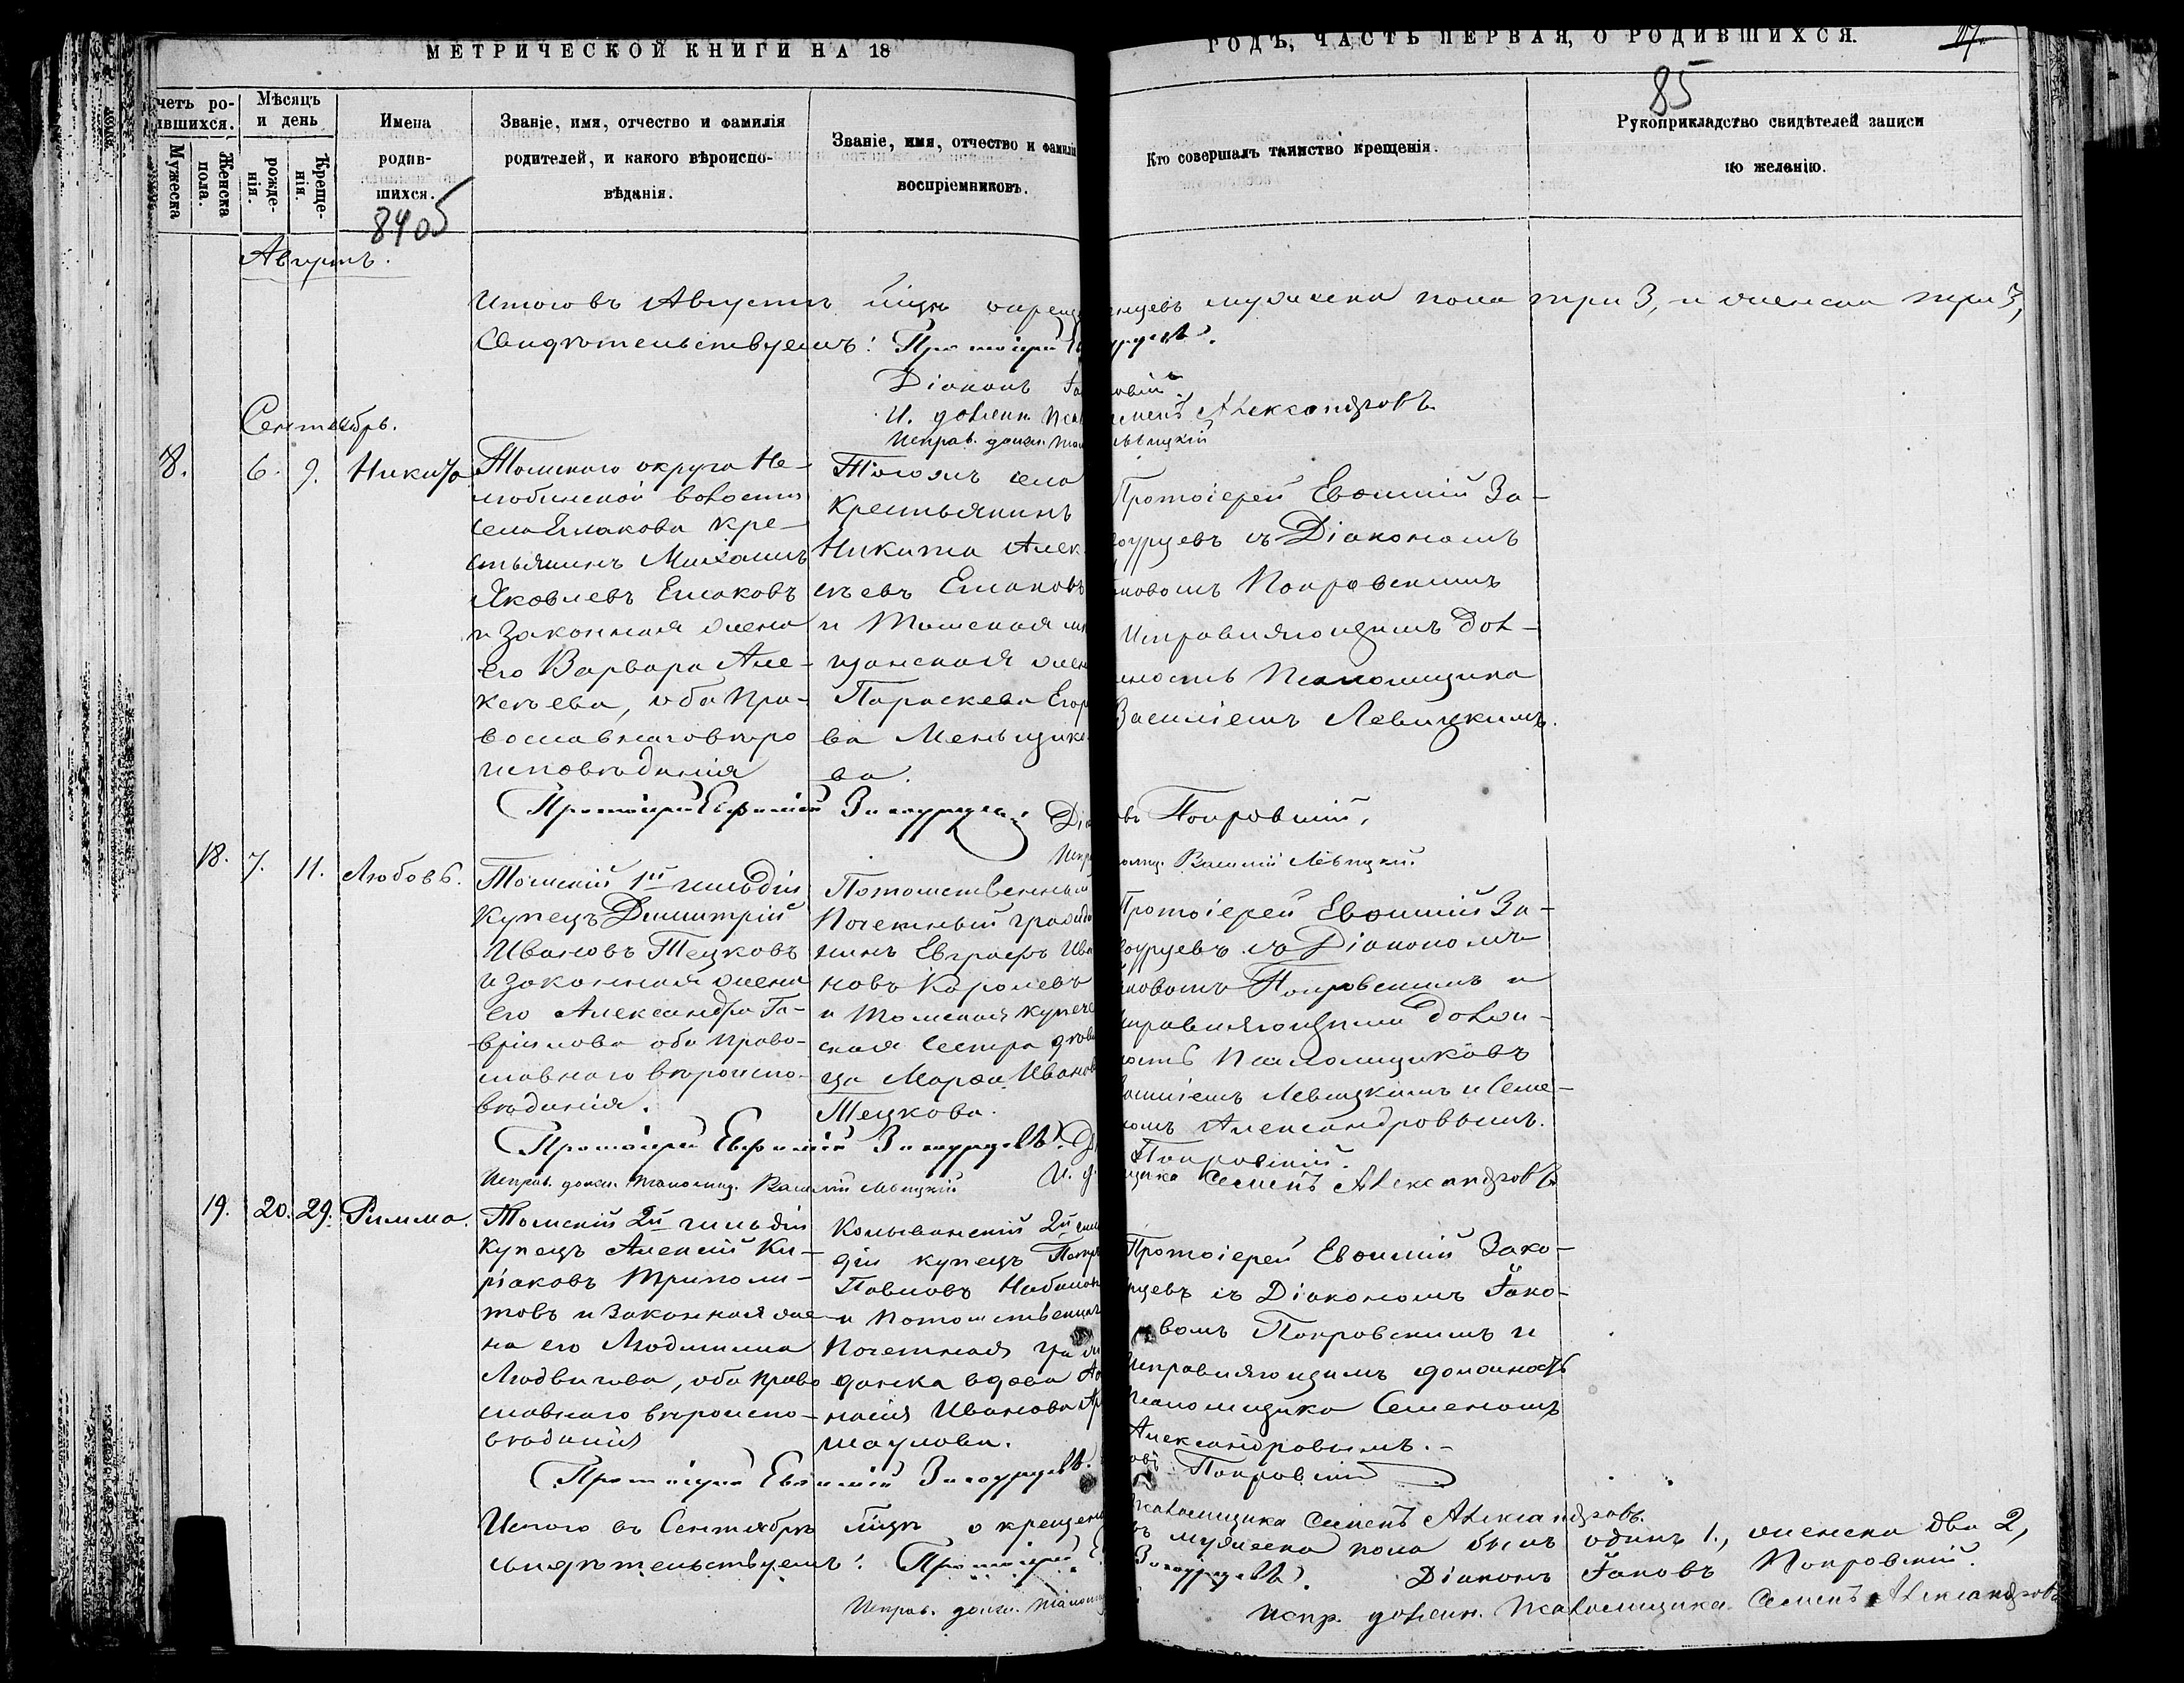 МЕТРИЧЕСКОЙ КНИГИ НА 18
ГОДЪ, ЧАСТЬ ПЕРВАЯ, О РОДИВШИХСЯ.
85
четъ ро-
ившихся.
Мужеска
Женска
пола.
Мѣсяцъ
и день
рожде-
нія.
Креще-
нія.
Имена
родив-
шихся.
8405
Званіе, имя, отчество и фамилія
родителей, и какого вѣроиспо-
вѣданія.
Званіе, имя, отчество и фамилі
воспріемниковъ.
Кто совершалъ таинство крещенія.
Рукоприкладство свидѣтелей записи
по желанію.
Августъ.
Итого въ Августѣ мцѣ окрещ енцевъ мужеска пола три 3, и женска три 3,
Свидѣтельствуемъ: Протоіерей
Діаконъ
И. должн. Семенъ Александровъ
Исправ. должн.
Сентябрь.
8. 6. 9. Никита
Томскаго округа Не-
любинской волости
села Елгакова кре-
стьянинъ Михаилъ
Яковлевъ
и законная жена
его Варвара Але-
ксѣева, оба пра-
вославнаго вѣро
исповѣданія
Тогожъ села
Крестьянинъ
Никита Алек
сѣевъ
и Томская мѣ
щанская жен
Параскева Егор
ва Меньщико
ва.
Протоіерей Евѳимій За-
коурцевъ съ Діакономъ
ковомъ Покровскимъ
Исправляющимъ дол-
жность Псаломщика
Василіемъ Левицкимъ.
Протоіерей Евѳимій Закоурцевъ. Діа
въ Покровскій,
Испр
омщ. Василій Левицкій
18. 7. 11. Любовь.
Томскій 1й гильдіи
Купецъ Димитрій
Ивановъ Тецковъ
и законная жена
его Александра Га-
вріилова оба право-
славнаго вѣроиспо-
вѣданія.
Потомственный
Почетный гражда
нинъ Евграфъ Ива
новъ Королевъ
и Томская купече
ская сестра дѣви
ца Марѳа Иванов
Тецкова.
Протоіерей Евѳимій За-
коурцевъ съ Діакономъ
ковомъ Покровскимъ и
исправляющими долж-
ность Псаломщиковъ
Василіемъ Левицкимъ и Семе-
номъ Александровымъ.
Протоіерей Евѳимій Закоурцевъ. Д
Покровскій.
Исправ. должн. Псаломщ. Василій Левицкій
И. д.
щика Семенъ Александровъ
19. 20. 29. Римма.
Томскій 2й гильдіи
Купецъ Алексій Ки-
ріаковъ Триполи-
товъ и законная же
на его Людмилла
Людвигова, оба право
славнаго вѣроиспо-
вѣданія
Колыванскій 2й гил
діи купецъ Петръ
Павловъ
и потомственная
почетная граж
данка вдова
насія Иванова
маулова.
Протоіерей Евѳимій Зако-
урцевъ съ Діакономъ Іако-
вомъ Покровскимъ и
исправляющимъ должность
Псаломщика Семеномъ
Александровымъ.
Протоіерей Евѳимій Закоурцевъ.
овъ Покровскій
Псаломщика Семенъ Александровъ.
Итого въ Сентябрѣ мцѣ окрещен въ мужеска пола былъ одинъ 1., женска два 2,
Свидѣтельствуемъ: Протоіерей Е Закоурцевъ. Діаконъ Іаковъ Покровскій.
Исправ. должн. Псаломщ
Испр. должн. Псаломщика Семенъ Александровъ